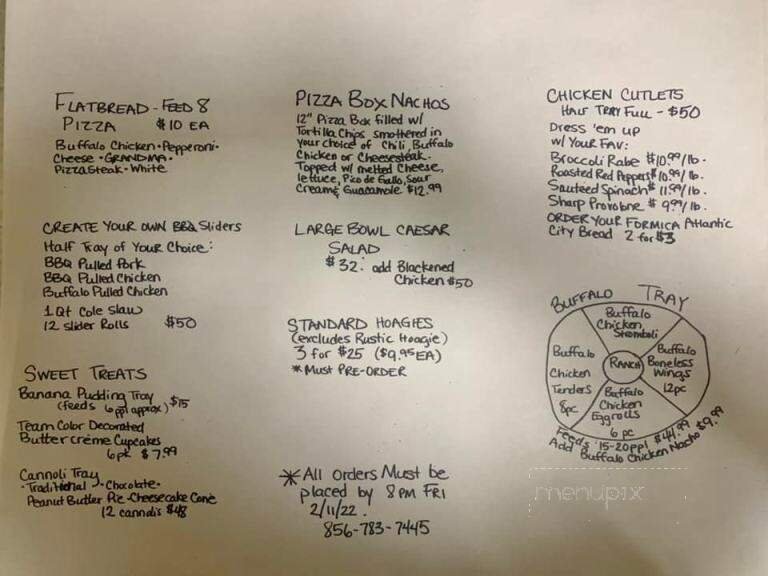 FLATBREAD - FEED 8
PIZZA $10 EA
Buffalo Chicken • Pepperoni •
Cheese • GRANDMA •
Pizza Steak • White
CREATE YOUR OWN BBQ Sliders
Half Tray of Your Choice:
BBQ Pulled Pork
BBQ Pulled Chicken
Buffalo Pulled Chicken
1 Qt Cole Slaw
12 slider Rolls $50
SWEET TREATS
Banana Pudding Tray
(feeds 6 ppl approx) $15
Team Color Decorated
Buttercréme Cupcakes
6pk $7.99
Cannoli Tray
• Traditional • Chocolate •
Peanut Butter Pie • Cheesecake Cone
12 cannolis $48
PIZZA BOX NACHOS
12" Pizza Box filled w/
Tortilla Chips smothered in
your choice of Chili, Buffalo
Chicken or Cheesesteak.
Topped w/ melted Cheese,
lettuce, Pico de Gallo, Sour
Cream & Guacamole $12.99
LARGE BOWL CAESAR
SALAD
$32: add Blackened
Chicken $50
STANDARD HOAGIES
(excludes Rustic Hoagie)
3 for $25 ($9.95 EA)
* Must PRE-ORDER
*All Orders Must be
placed by 8 PM FRI
2/11/22.
856-783-7445
CHICKEN CUTLETS
HALF TRAY FULL - $50
Dress 'em up
w/ YOUR FAV:
Broccoli Rabe $10.99/lb.
Roasted Red Peppers $10.99/lb.
Sauteed Spinach $11.99/lb.
Sharp Provolone $9.99/lb.
ORDER YOUR FORMICA Atlantic
City Bread 2 for $3
BUFFALO TRAY
Buffalo
Chicken
Stromboli
Buffalo
Boneless
Wings
12pc
RANCH
Buffalo
Chicken
Tenders
8pc
Buffalo
Chicken
Eggrolls
6 pc
Feeds 15-20 ppl $44.99
Add Buffalo Chicken Nacho $9.99
menupix